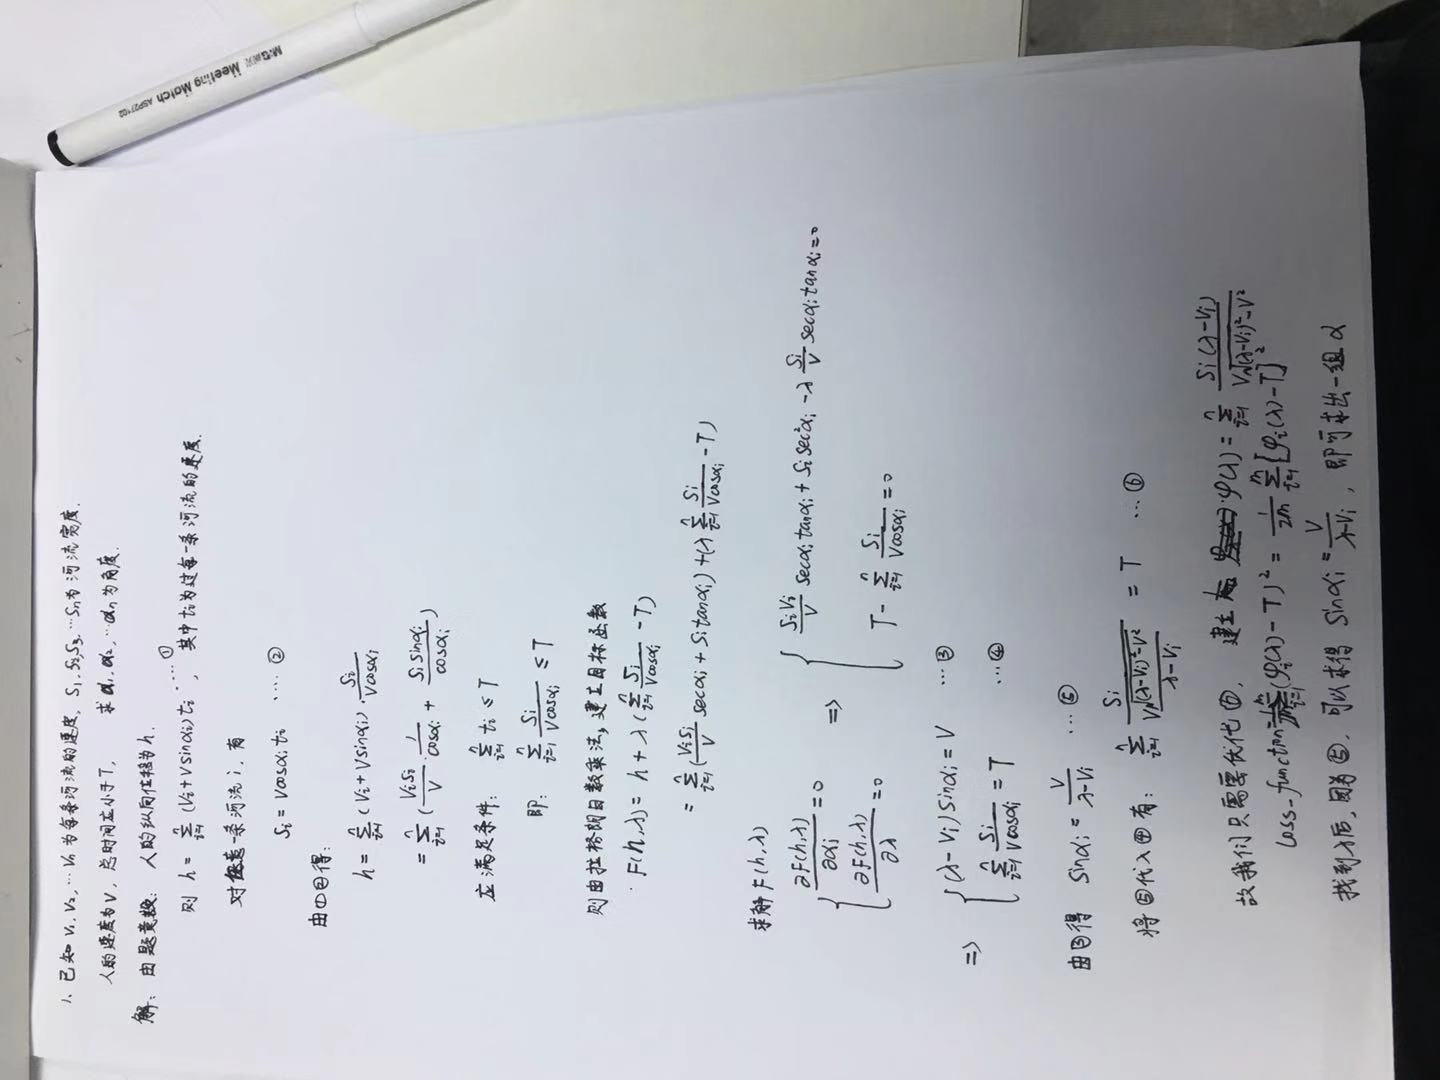 M&G晨光 Meeting Match ASP27102
1. 已知 V₁, V₂, … Vₙ 为每条河流的速度, S₁, S₂, S₃, … Sₙ 为河流宽度.
人的速度为 V, 总时间应小于 T, 求 α₁, α₂, … αₙ 为角度.
解: 由题意: 人的纵向位移为 h.
则 h = ∑ⁿᵢ₌₁ (Vᵢ + V sinαᵢ) tᵢ …①, 其中 tᵢ 为过每一条河流的速度.
对任意一条河流 i, 有
Sᵢ = V cosαᵢ tᵢ …②
由①②得:
h = ∑ⁿᵢ₌₁ (Vᵢ + V sinαᵢ) · Sᵢ / (V cosαᵢ)
= ∑ⁿᵢ₌₁ (VᵢSᵢ / V · 1 / cosαᵢ + Sᵢ sinαᵢ / cosαᵢ)
应满足条件: ∑ⁿᵢ₌₁ tᵢ ≤ T
即: ∑ⁿᵢ₌₁ Sᵢ / (V cosαᵢ) ≤ T
则由拉格朗日数乘法, 建立目标函数
F(h, λ) = h + λ (∑ⁿᵢ₌₁ Sᵢ / (V cosαᵢ) - T)
= ∑ⁿᵢ₌₁ (VᵢSᵢ / V secαᵢ + Sᵢ tanαᵢ) + (λ ∑ⁿᵢ₌₁ Sᵢ / (V cosαᵢ) - T)
求解 F(h, λ)
{ ∂F(h, λ) / ∂αᵢ = 0 ⇒ { SᵢVᵢ / V secαᵢ tanαᵢ + Sᵢ sec²αᵢ - λ Sᵢ / V secαᵢ tanαᵢ = 0
∂F(h, λ) / ∂λ = 0 T - ∑ⁿᵢ₌₁ Sᵢ / (V cosαᵢ) = 0
⇒ { (λ - Vᵢ) sinαᵢ = V …③
∑ⁿᵢ₌₁ Sᵢ / (V cosαᵢ) = T …④
由③得 sinαᵢ = V / (λ - Vᵢ) …⑤
将⑤代入④有: ∑ⁿᵢ₌₁ Sᵢ / (V √((λ - Vᵢ)² - V²) / (λ - Vᵢ)) = T …⑥
故我们只需要优化⑦, 建立 φ(λ) = ∑ⁿᵢ₌₁ Sᵢ(λ - Vᵢ) / (V √((λ - Vᵢ)² - V²))
Loss-function (φᵢ(λ) - T)² = 1 / 2n ∑ⁿᵢ₌₁ [φᵢ(λ) - T]²
找到λ后, 因为⑤, 可以求得 sinαᵢ = V / (λ - Vᵢ), 即可求出一组 α